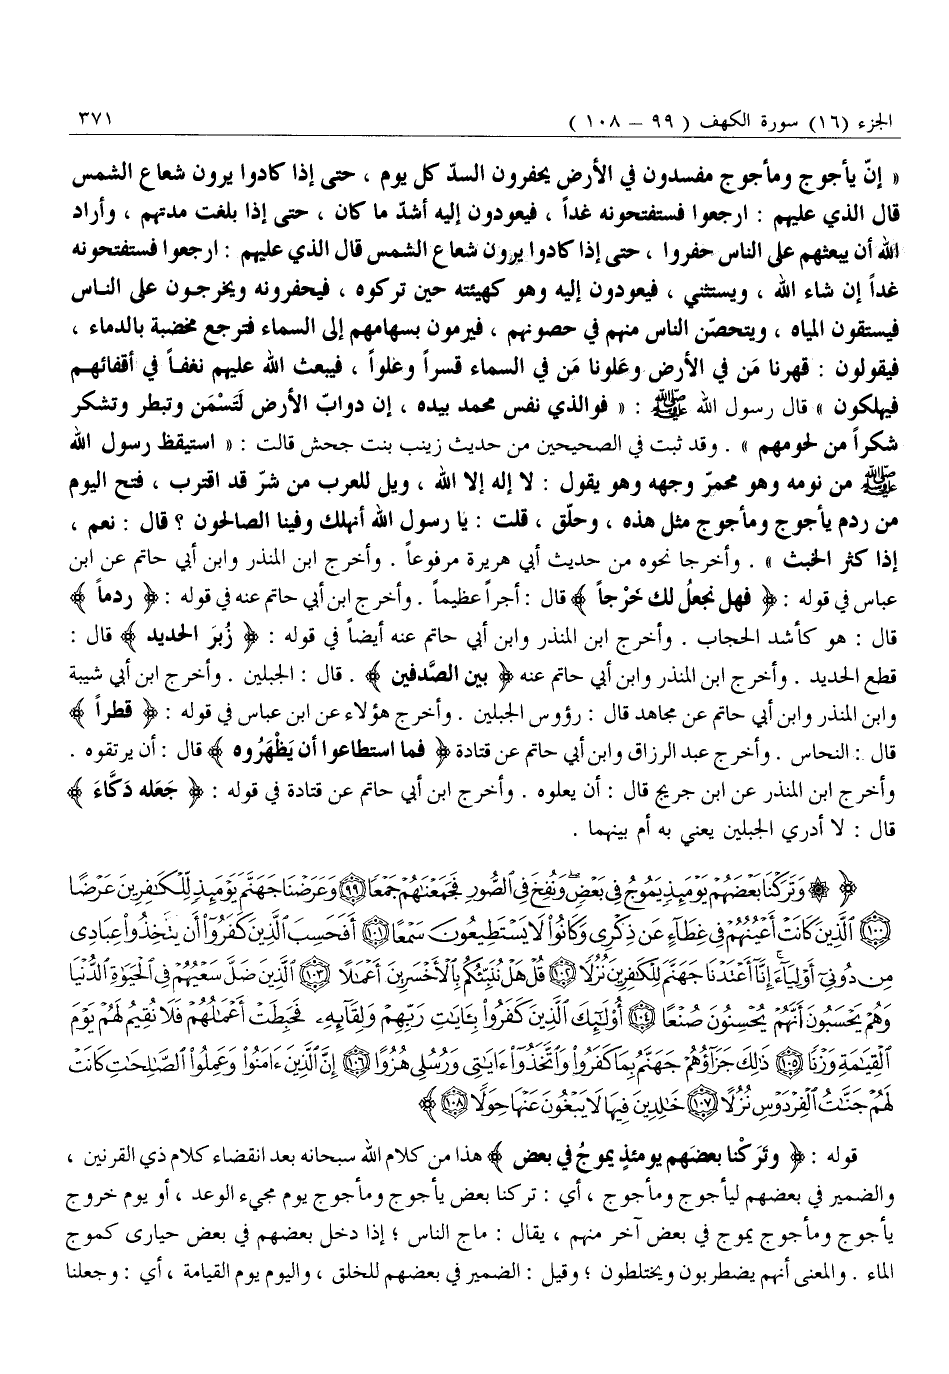 الجزء (١٦) سورة الكهف ( ٩٩ – ١٠٨ ) ٣٧١
« إنّ يأجوج ومأجوج مفسدون في الأرض يحفرون السدّ كل يوم ، حتى إذا كادوا يرون شعاع الشمس
قال الذي عليهم : ارجعوا فستفتحونه غداً ، فيعودون إليه أشدّ ما كان ، حتى إذا بلغت مدتهم ، وأراد
الله أن يبعثهم على الناس حفروا ، حتى إذا كادوا يرون شعاع الشمس قال الذي عليهم : ارجعوا فستفتحونه
غداً إن شاء الله ، ويستثني ، فيعودون إليه وهو كهيئته حين تركوه ، فيحفرونه ويخرجون على الناس
فيستقون المياه ، ويتحصّن الناس منهم في حصونهم ، فيرمون بسهامهم إلى السماء فترجع مخضبة بالدماء ،
فيقولون : قهرنا مَن في الأرض وعَلونا مَن في السماء قسراً وعلواً ، فيبعث الله عليهم نغفاً في أقفائهم
فيهلكون » قال رسول الله ﷺ : « فوالذي نفس محمد بيده ، إن دوابّ الأرض لَتَسْمَن وتبطر وتشكر
شكراً من لحومهم » . وقد ثبت في الصحيحين من حديث زينب بنت جحش قالت : « استيقظ رسول الله
ﷺ من نومه وهو محمرّ وجهه وهو يقول : لا إله إلا الله ، ويل للعرب من شرّ قد اقترب ، فتح اليوم
من ردم يأجوج ومأجوج مثل هذه ، وحلّق ، قلت : يا رسول الله أنهلك وفينا الصالحون ؟ قال : نعم ،
إذا كثر الخبث » . وأخرجا نحوه من حديث أبي هريرة مرفوعاً . وأخرج ابن المنذر وابن أبي حاتم عن ابن
عباس في قوله : ﴿ فهل نجعلُ لك خَرْجاً ﴾ قال : أجراً عظيماً . وأخرج ابن أبي حاتم عنه في قوله : ﴿ ردماً ﴾
قال : هو كأشد الحجاب . وأخرج ابن المنذر وابن أبي حاتم عنه أيضاً في قوله : ﴿ زُبَرَ الحديد ﴾ قال :
قطع الحديد . وأخرج ابن المنذر وابن أبي حاتم عنه ﴿ بين الصَّدفين ﴾ . قال : الجبلين . وأخرج ابن أبي شيبة
وابن المنذر وابن أبي حاتم عن مجاهد قال : رؤوس الجبلين . وأخرج هؤلاء عن ابن عباس في قوله : ﴿ قطراً ﴾
قال : النحاس . وأخرج عبد الرزاق وابن أبي حاتم عن قتادة ﴿ فما استطاعوا أن يَظْهَرُوه ﴾ قال : أن يرتقوه .
وأخرج ابن المنذر عن ابن جريج قال : أن يعلوه . وأخرج ابن أبي حاتم عن قتادة في قوله : ﴿ جَعَله دَكَّاءَ ﴾
قال : لا أدري الجبلين يعني به أم بينهما .
﴿ ۞ وَتَرَكْنَا بَعْضَهُمْ يَوْمَئِذٍ يَمُوجُ فِي بَعْضٍ ۖ وَنُفِخَ فِي ٱلصُّورِ فَجَمَعْنَٰهُمْ جَمْعًا ۝٩٩ وَعَرَضْنَا جَهَنَّمَ يَوْمَئِذٍ لِّلْكَٰفِرِينَ عَرْضًا
۝١٠٠ ٱلَّذِينَ كَانَتْ أَعْيُنُهُمْ فِي غِطَآءٍ عَن ذِكْرِي وَكَانُوا۟ لَا يَسْتَطِيعُونَ سَمْعًا ۝١٠١ أَفَحَسِبَ ٱلَّذِينَ كَفَرُوٓا۟ أَن يَتَّخِذُوا۟ عِبَادِي
مِن دُونِيٓ أَوْلِيَآءَ ۚ إِنَّآ أَعْتَدْنَا جَهَنَّمَ لِلْكَٰفِرِينَ نُزُلًا ۝١٠٢ قُلْ هَلْ نُنَبِّئُكُم بِٱلْأَخْسَرِينَ أَعْمَٰلًا ۝١٠٣ ٱلَّذِينَ ضَلَّ سَعْيُهُمْ فِي ٱلْحَيَوٰةِ ٱلدُّنْيَا
وَهُمْ يَحْسَبُونَ أَنَّهُمْ يُحْسِنُونَ صُنْعًا ۝١٠٤ أُو۟لَٰٓئِكَ ٱلَّذِينَ كَفَرُوا۟ بِـَٔايَٰتِ رَبِّهِمْ وَلِقَآئِهِۦ فَحَبِطَتْ أَعْمَٰلُهُمْ فَلَا نُقِيمُ لَهُمْ يَوْمَ
ٱلْقِيَٰمَةِ وَزْنًا ۝١٠٥ ذَٰلِكَ جَزَآؤُهُمْ جَهَنَّمُ بِمَا كَفَرُوا۟ وَٱتَّخَذُوٓا۟ ءَايَٰتِي وَرُسُلِي هُزُوًا ۝١٠٦ إِنَّ ٱلَّذِينَ ءَامَنُوا۟ وَعَمِلُوا۟ ٱلصَّٰلِحَٰتِ كَانَتْ
لَهُمْ جَنَّٰتُ ٱلْفِرْدَوْسِ نُزُلًا ۝١٠٧ خَٰلِدِينَ فِيهَا لَا يَبْغُونَ عَنْهَا حِوَلًا ۝١٠٨ ﴾
قوله : ﴿ وتَرَكْنا بعضَهم يومئذٍ يموجُ في بعض ﴾ هذا من كلام الله سبحانه بعد انقضاء كلام ذي القرنين ،
والضمير في بعضهم ليأجوج ومأجوج ، أي : تركنا بعض يأجوج ومأجوج يوم مجيء الوعد ، أو يوم خروج
يأجوج ومأجوج يموج في بعض آخر منهم ، يقال : ماج الناس ؛ إذا دخل بعضهم في بعض حيارى كموج
الماء . والمعنى أنهم يضطربون ويختلطون ؛ وقيل : الضمير في بعضهم للخلق ، واليوم يوم القيامة ، أي : وجعلنا